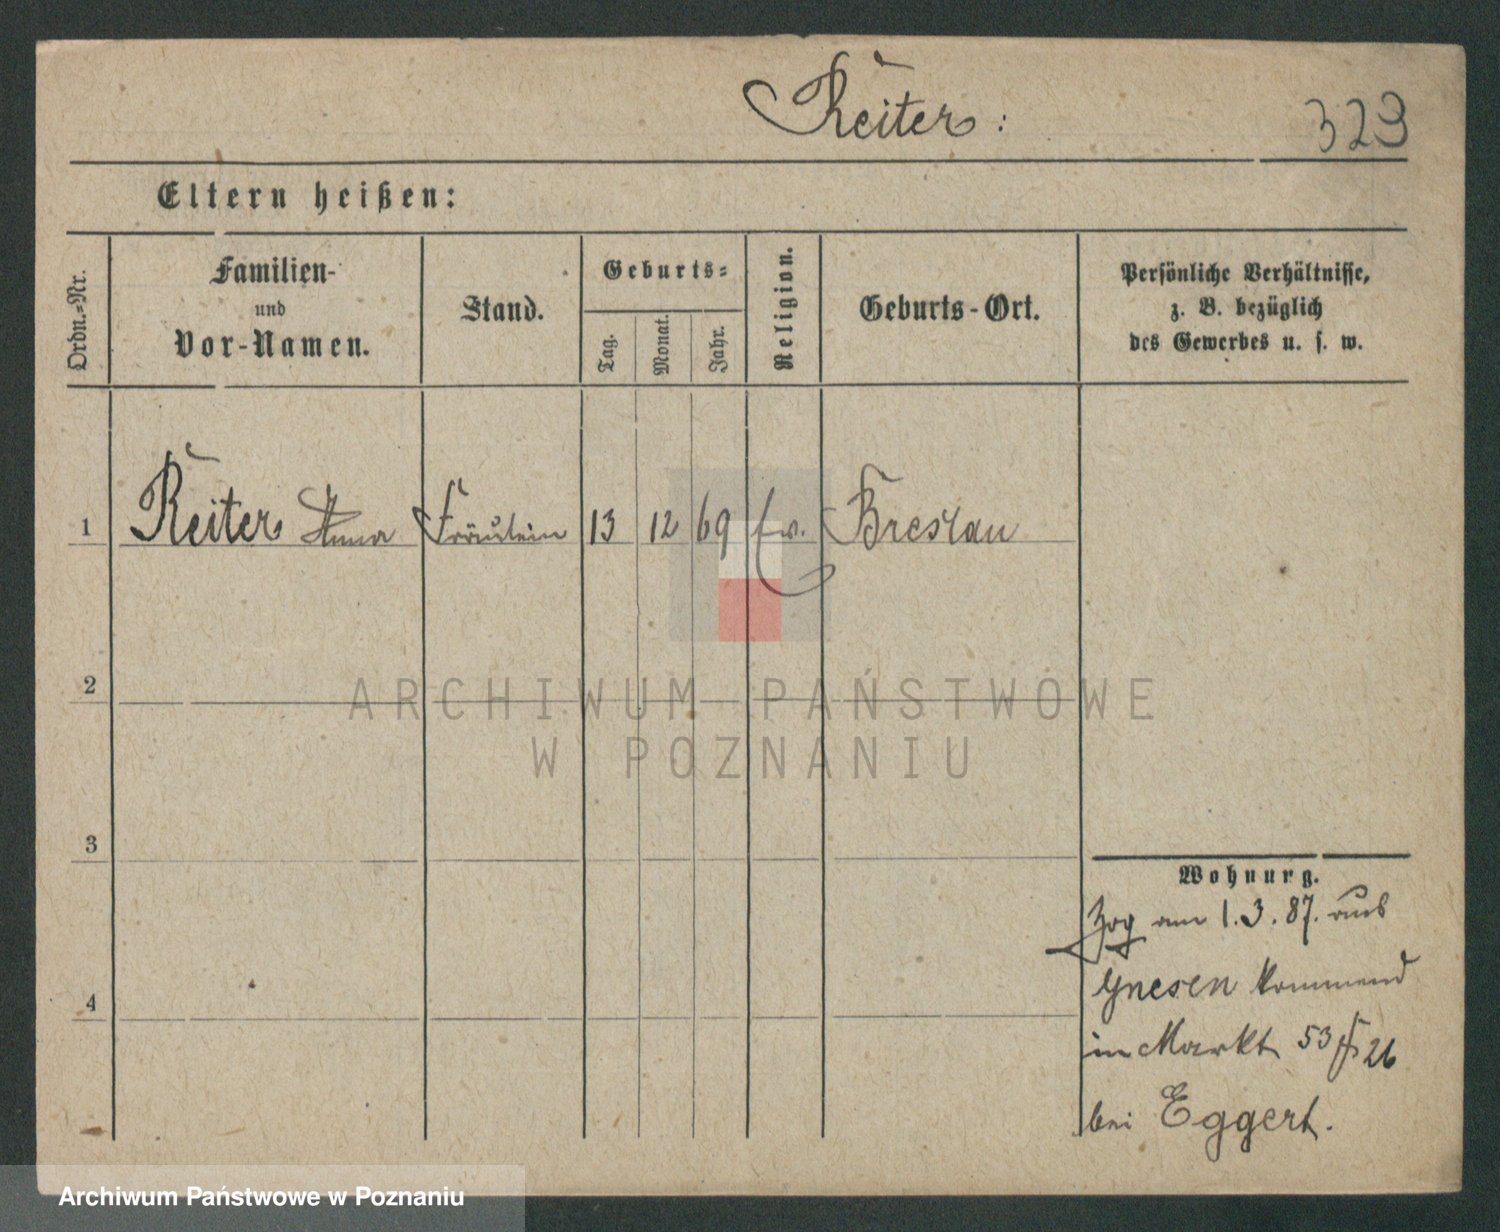 Reiter :
323
Eltern heißen:
Ordn.-Nr.
Familien-
und
Vor-Namen.
Stand.
Geburts-
Tag.
Monat.
Jahr.
Religion.
Geburts-Ort.
Persönliche Verhältnisse,
z. B. bezüglich
des Gewerbes u. s. w.
1 Reiter Anna Fräulein 13 12 69 Breslau
2
3
4
ARCHIWUM PAŃSTWOWE
W POZNANIU
Wohnung.
Zog am 1.3.87. aus
Gnesen kommend
in Markt 53/ 26
bei Eggert.
Archiwum Państwowe w Poznaniu